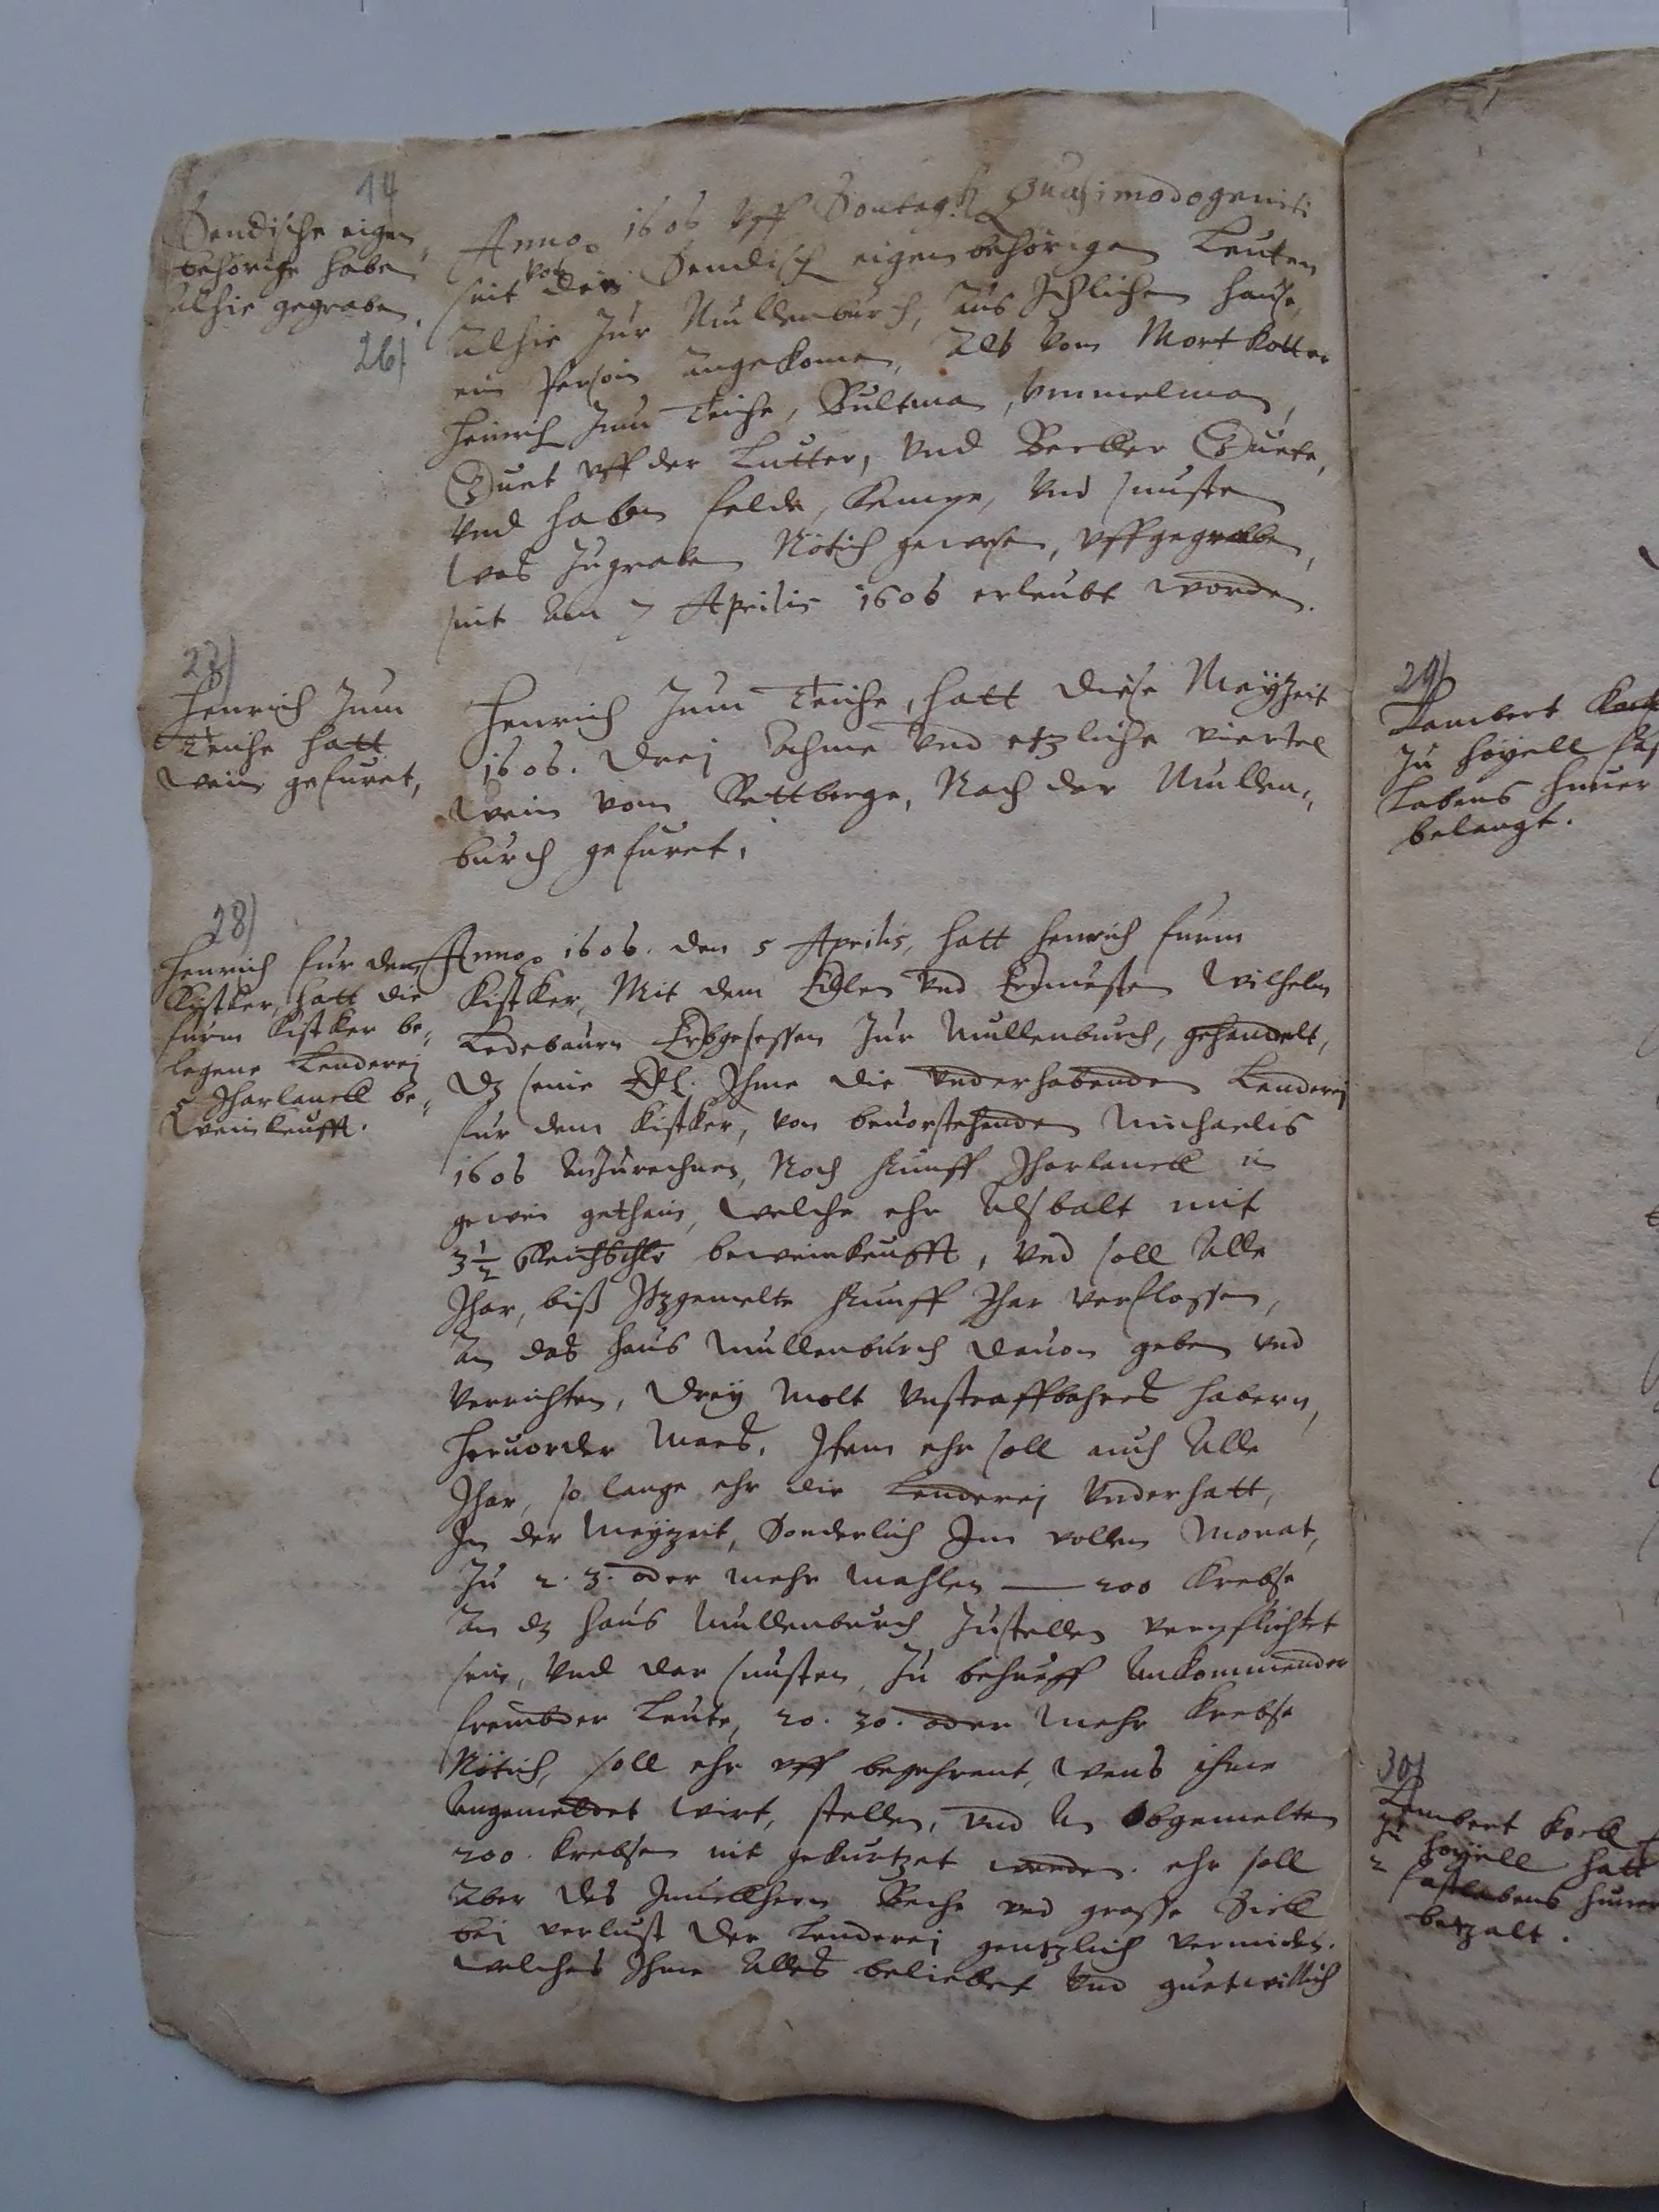 14
Sendische eigen„
behorige haben
alhie gegraben.
26)
Anno 1606 vff Sontagh Quasimodogeniti
seint von den Sendisch eigenbehörigen Leuten
alhie zur Mullenburch, aus Jtzlichem hause,
ein Person angekomen, als vom Mortkotter
Heinrich zum Teiche, Bultman, Ummelman,
Duet vff der Lutter, vnd Becker Duete,
vnd haben felde, Kempe, vnd sunsten
was zugraben Nötich gewesen, vffgegraben,
seint am 7 Aprilis 1606 erleubt worden.
27)
Henrich zum
Teiche hatt
wein gefuret,
Henrich zum Teiche, hatt diese Meyzeit
1606. drej Ahme vnd etzliche viertel
wein vom Rettberge, Nach der Mullen„
burch gefuret.
28)
Henrich fur dem
Kistker, hatt die
furm Kistker be„
legene Lenderej
5 Jharlanck be„
weinkeufft.
Anno 1606. den 5 Aprilis, hatt Henrich furm
Kistker, Mit dem Edlen vnd Erenuesten Wilhelm
Ledebaurn Erbgesessen zur Mullenburch, gehandelt,
dz seine Edl. Jhme die vnderhabenden Lenderej
fur dem Kistker, von beuorstehenden Michaelis
1606 anzurechnen, Noch Funff Jharlanck in
gewin gethain, welche ehr alsbalt mit
3 1/2 Reichsthlr beweinkeufft, vnd soll alle
Jhar, biß Jtzgemelte Funff Jhar verflossen,
an das Haus Mullenburch dauon geben vnd
verrichten, drey Molt vnstraffbahres habern,
Heruorder Maes. Jtem ehr soll auch alle
Jhar, so lange ehr die Lenderej vnderhatt,
Jn der Meyzeit, Sonderlich Jm vollen Monat,
zu 2. 3. oder mehr mahlen — 200 Krebse
an dz Haus Mullenburch zustellen verpflichtet
sein, vnd dar sunsten, zu behueff ankommender
frembder Leute, 20. 30. oder mehr Krebse
Nötich, soll ehr vff begehrent, wens ihme
angemeldet wirt, stellen, vnd an obgemelten
200. Krebsen nit gekurtzet werden. ehr soll
aber des Junckhern Beche vnd grosse Siek
bei verlust der Lenderej gentzlich vermiden.
welches Jhme alles beliebet vnd guetwillich
29)
Lambert
zu Hoyell
Labens huner
belangt.
30)
Lambert Kock
zu Hoyell hatt
2 fastlabens huner
betzalt.